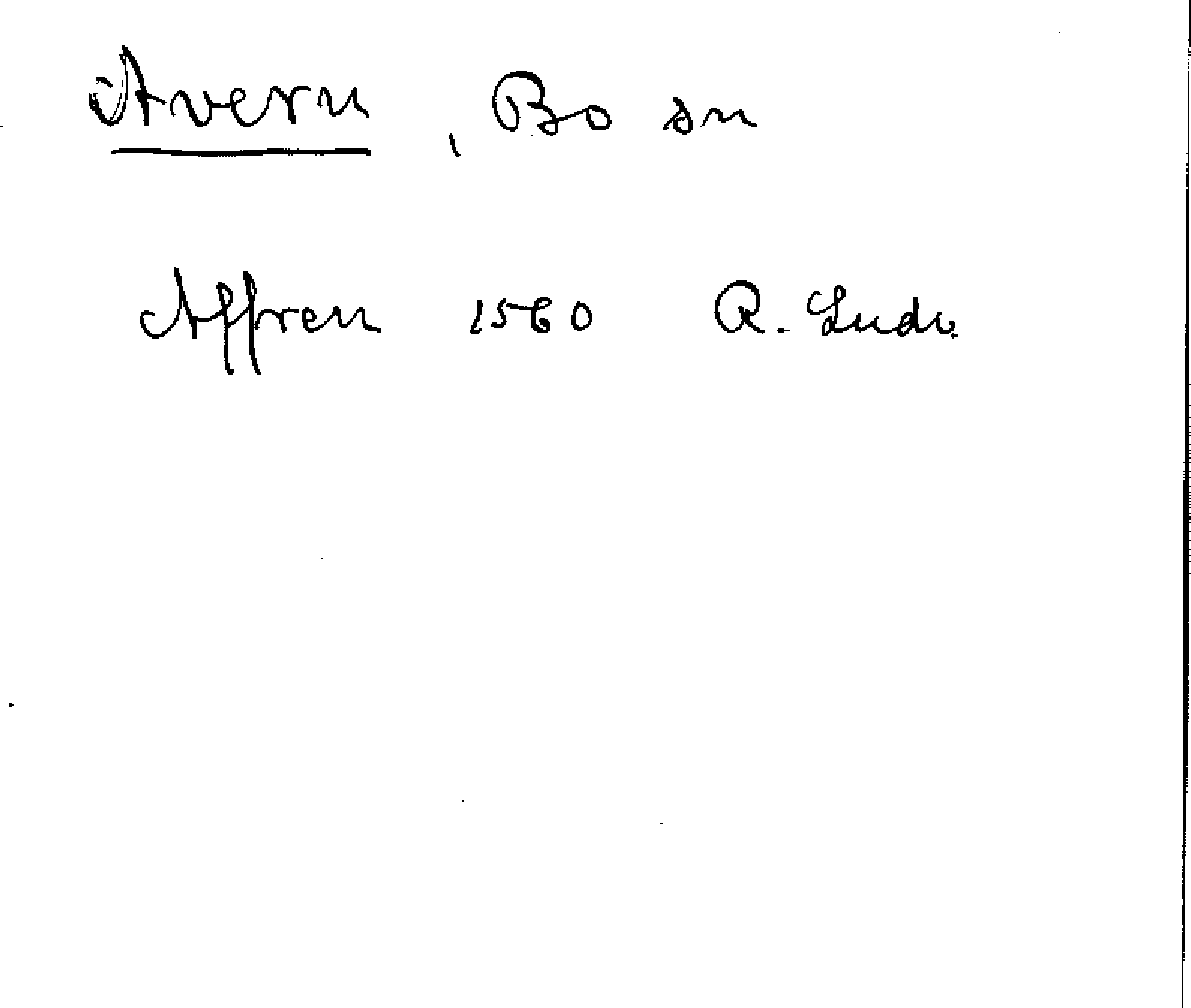 Avern, Bo sn
Affren 1560 R. Ludv.